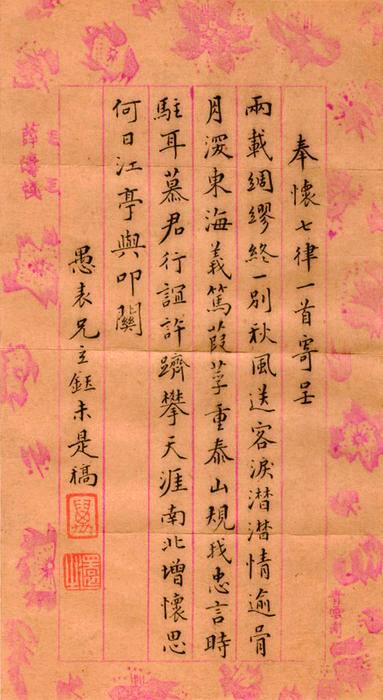 奉懷七律一首寄呈
兩載綢繆終一別秋風送客淚潸潸情逾骨
月深東海義篤葭莩重泰山規我忠言時
駐耳慕君行誼許躋攀天涯南北增懷思
何日江亭與叩關
愚表兄立鈺未是稿
薛濤箋